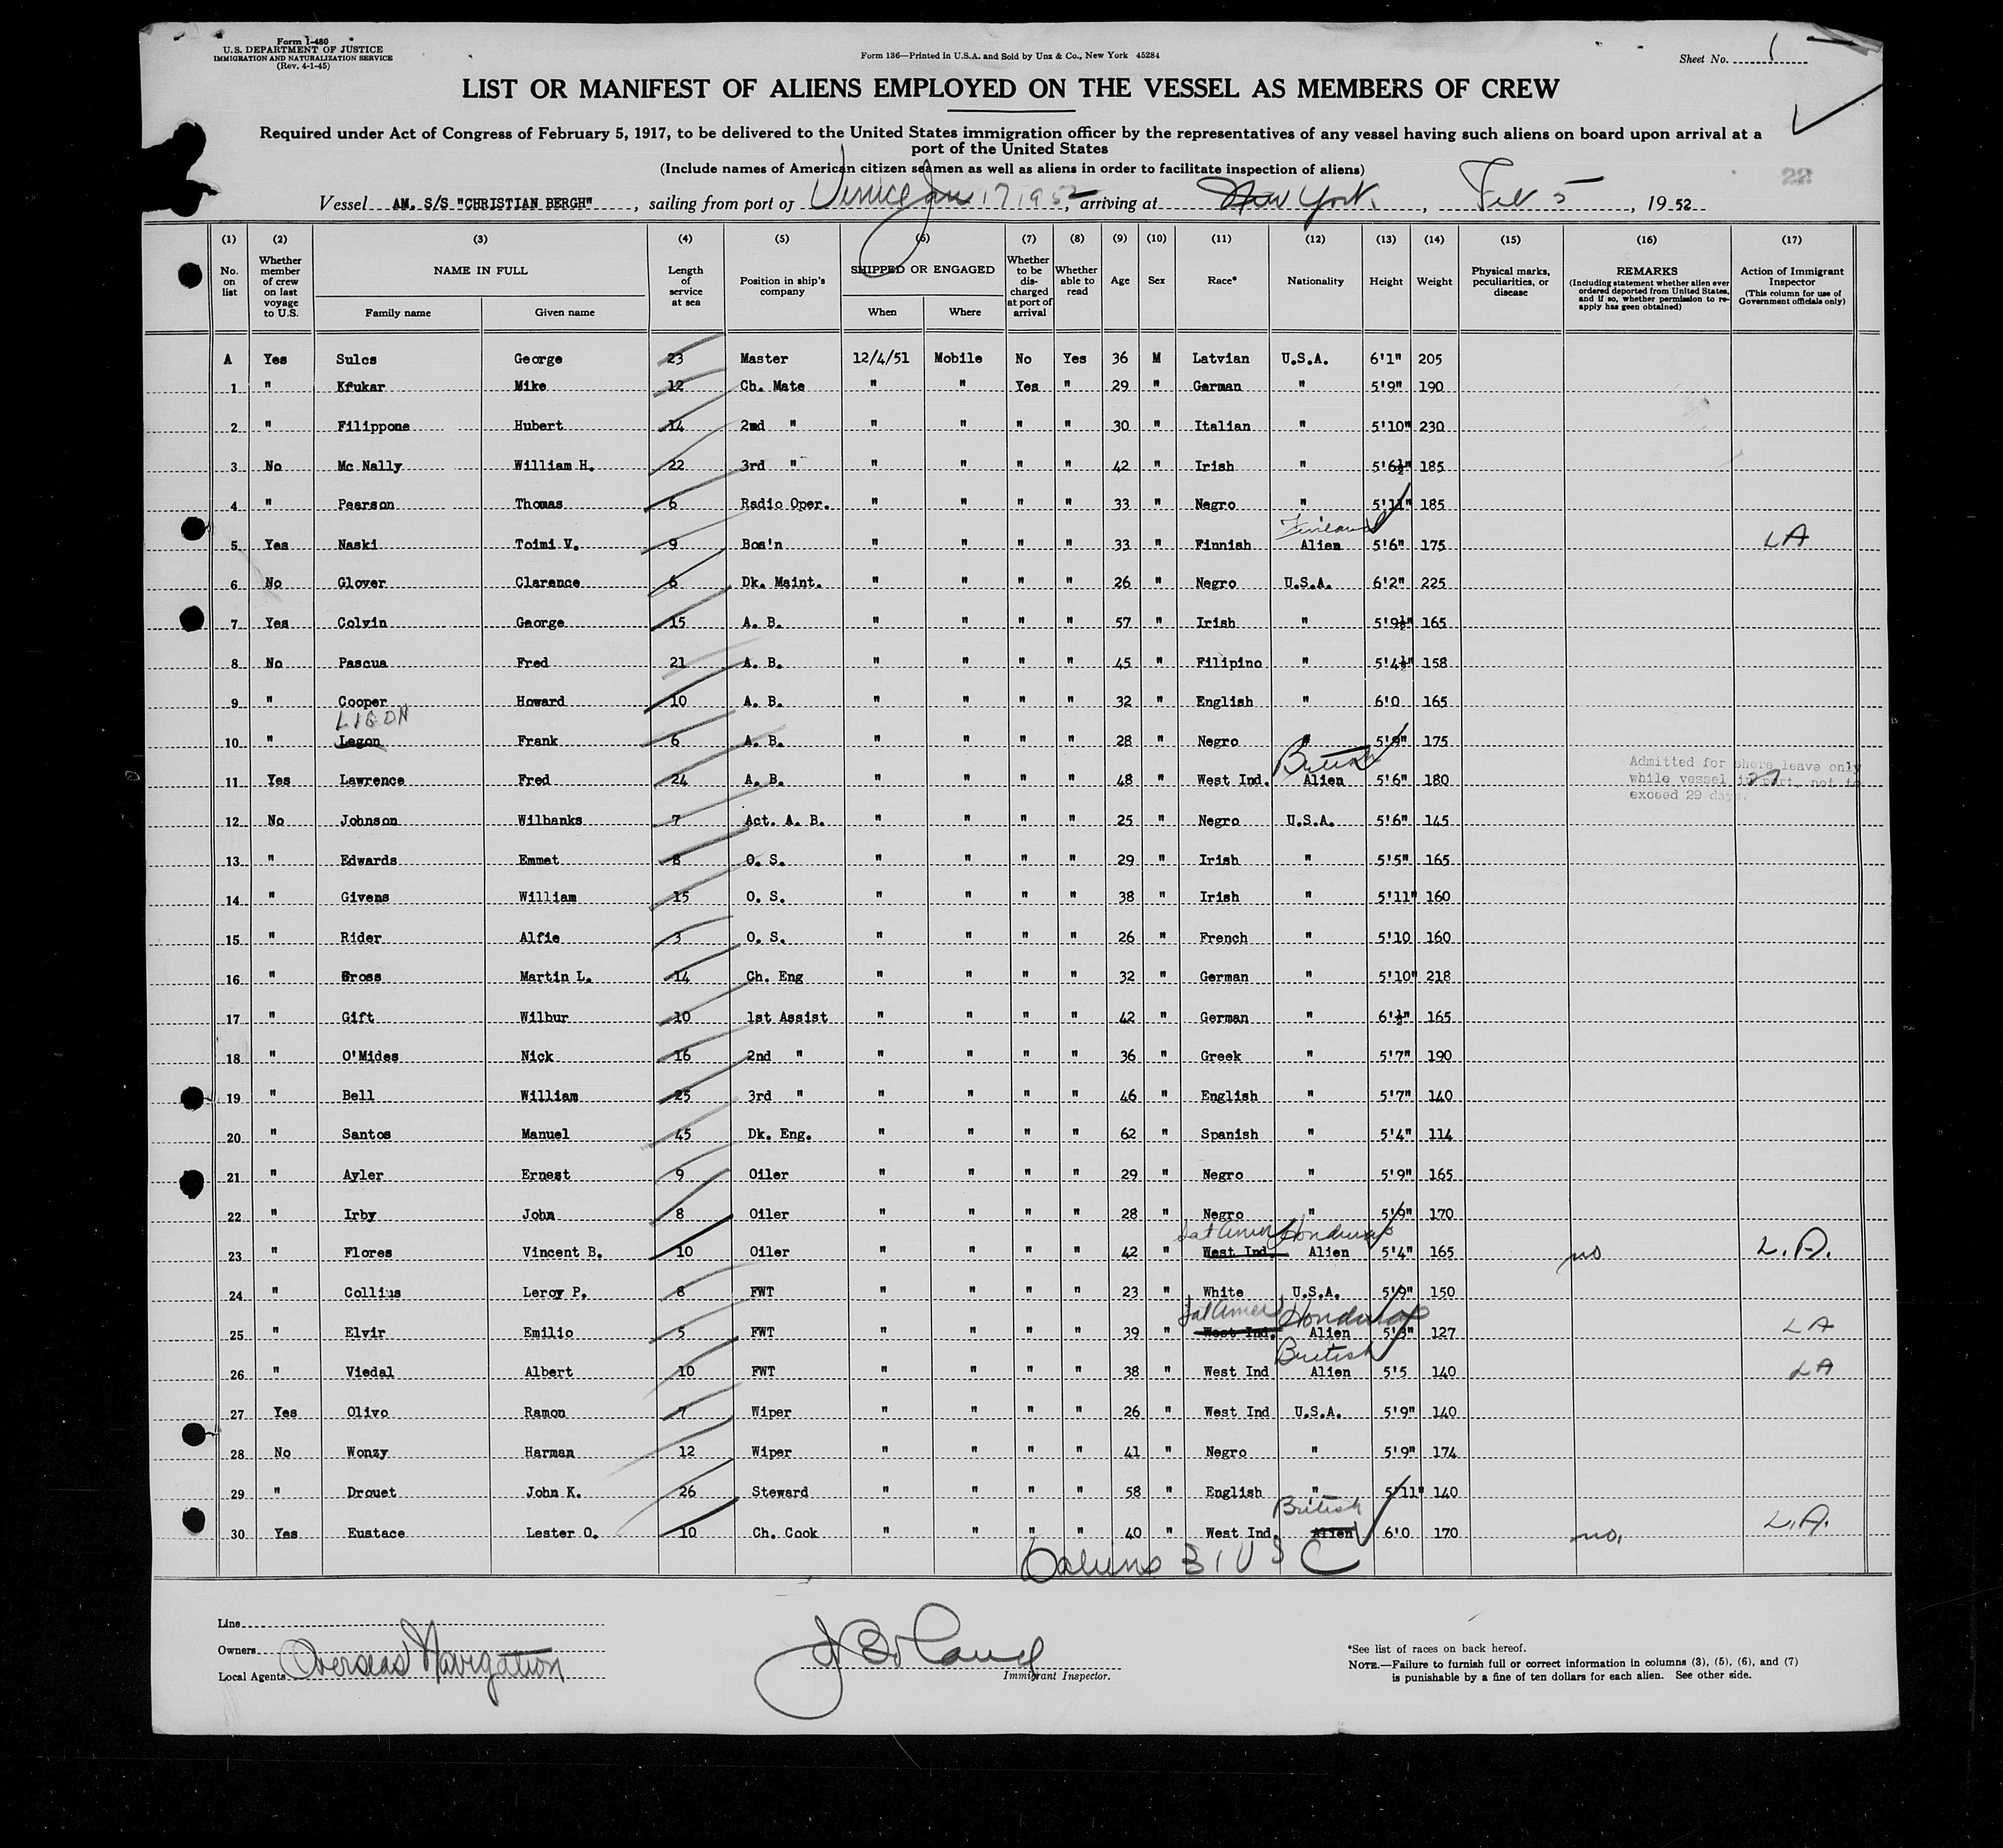 Form I-480
U.S. DEPARTMENT OF JUSTICE
IMMIGRATION AND NATURALIZATION SERVICE
(Rev. 4-1-45)
Form 136—Printed in U.S.A. and Sold by Unz & Co., New York 45284
Sheet No. 1
LIST OR MANIFEST OF ALIENS EMPLOYED ON THE VESSEL AS MEMBERS OF CREW
Required under Act of Congress of February 5, 1917, to be delivered to the United States immigration officer by the representatives of any vessel having such aliens on board upon arrival at a
port of the United States
(Include names of American citizen seamen as well as aliens in order to facilitate inspection of aliens)
22
Vessel AM. S/S "CHRISTIAN BERGH", sailing from port of Venice Jan 17 1952, arriving at New York, Feb 5, 1952
(1) (2) (3) (4) (5) (6) (7) (8) (9) (10) (11) (12) (13) (14) (15) (16) (17)
No. on list
Whether member of crew on last voyage to U.S.
NAME IN FULL
Family name
Given name
Length of service at sea
Position in ship's company
SHIPPED OR ENGAGED
When
Where
Whether to be discharged at port of arrival
Whether able to read
Age
Sex
Race*
Nationality
Height
Weight
Physical marks, peculiarities, or disease
REMARKS
(Including statement whether alien ever ordered deported from United States, and if so, whether permission to re-apply has geen obtained)
Action of Immigrant Inspector
(This column for use of Government officials only)
A Yes Sulcs George 23 Master 12/4/51 Mobile No Yes 36 M Latvian U.S.A. 6'1" 205
1 " Krukar Mike 12 Ch. Mate " " Yes " 29 " German " 5'9" 190
2 " Filippone Hubert 14 2nd " " " " " 30 " Italian " 5'10" 230
3 No Mc Nally William H. 22 3rd " " " " " 42 " Irish " 5'6½" 185
4 " Pearson Thomas 6 Radio Oper. " " " " 33 " Negro " 5'11" 185
Finland
5 Yes Naski Toimi V. 9 Bos'n " " " " 33 " Finnish Alien 5'6" 175 LA
6 No Glover Clarence 6 Dk. Maint. " " " " 26 " Negro U.S.A. 6'2" 225
7 Yes Colvin George 15 A. B. " " " " 57 " Irish " 5'9½" 165
8 No Pascua Fred 21 A. B. " " " " 45 " Filipino " 5'4½" 158
9 " Cooper Howard 10 A. B. " " " " 32 " English " 6'0 165
LIGON
10 " Lagon Frank 6 A. B. " " " " 28 " Negro " 5'9" 175
British
11 Yes Lawrence Fred 24 A. B. " " " " 48 " West Ind. Alien 5'6" 180
Admitted for shore leave only
while vessel in port, not to
exceed 29 days.
12 No Johnson Wilbanks 7 Act. A. B. " " " " 25 " Negro U.S.A. 5'6" 145
13 " Edwards Emmet 8 O. S. " " " " 29 " Irish " 5'5" 165
14 " Givens William 15 O. S. " " " " 38 " Irish " 5'11" 160
15 " Rider Alfie 3 O. S. " " " " 26 " French " 5'10 160
16 " Gross Martin L. 14 Ch. Eng " " " " 32 " German " 5'10" 218
17 " Gift Wilbur 10 1st Assist " " " " 42 " German " 6'½" 165
18 " O'Mides Nick 16 2nd " " " " " 36 " Greek " 5'7" 190
19 " Bell William 25 3rd " " " " " 46 " English " 5'7" 140
20 " Santos Manuel 45 Dk. Eng. " " " " 62 " Spanish " 5'4" 114
21 " Ayler Ernest 9 Oiler " " " " 29 " Negro " 5'9" 165
22 " Irby John 8 Oiler " " " " 28 " Negro " 5'9" 170
Lat Amer Honduras
23 " Flores Vincent B. 10 Oiler " " " " 42 " West Ind. Alien 5'4" 165 no L.A.
24 " Collius Leroy P. 8 FWT " " " " 23 " White U.S.A. 5'9" 150
Lat Amer Honduras
25 " Elvir Emilio 5 FWT " " " " 39 " West Ind. Alien 5'3" 127 LA
British
26 " Viedal Albert 10 FWT " " " " 38 " West Ind Alien 5'5 140 LA
27 Yes Olivo Ramon 7 Wiper " " " " 26 " West Ind U.S.A. 5'9" 140
28 No Wonzy Harman 12 Wiper " " " " 41 " Negro " 5'9" 174
29 " Drouet John K. 26 Steward " " " " 58 " English " 5'11" 140
British
30 Yes Eustace Lester O. 10 Ch. Cook " " " " 40 " West Ind. Alien 6'0 170 no, L.A.
6 aliens 31 USC
Line
Owners
Local Agents Overseas Navigation
Immigrant Inspector.
*See list of races on back hereof.
NOTE.—Failure to furnish full or correct information in columns (3), (5), (6), and (7)
is punishable by a fine of ten dollars for each alien. See other side.